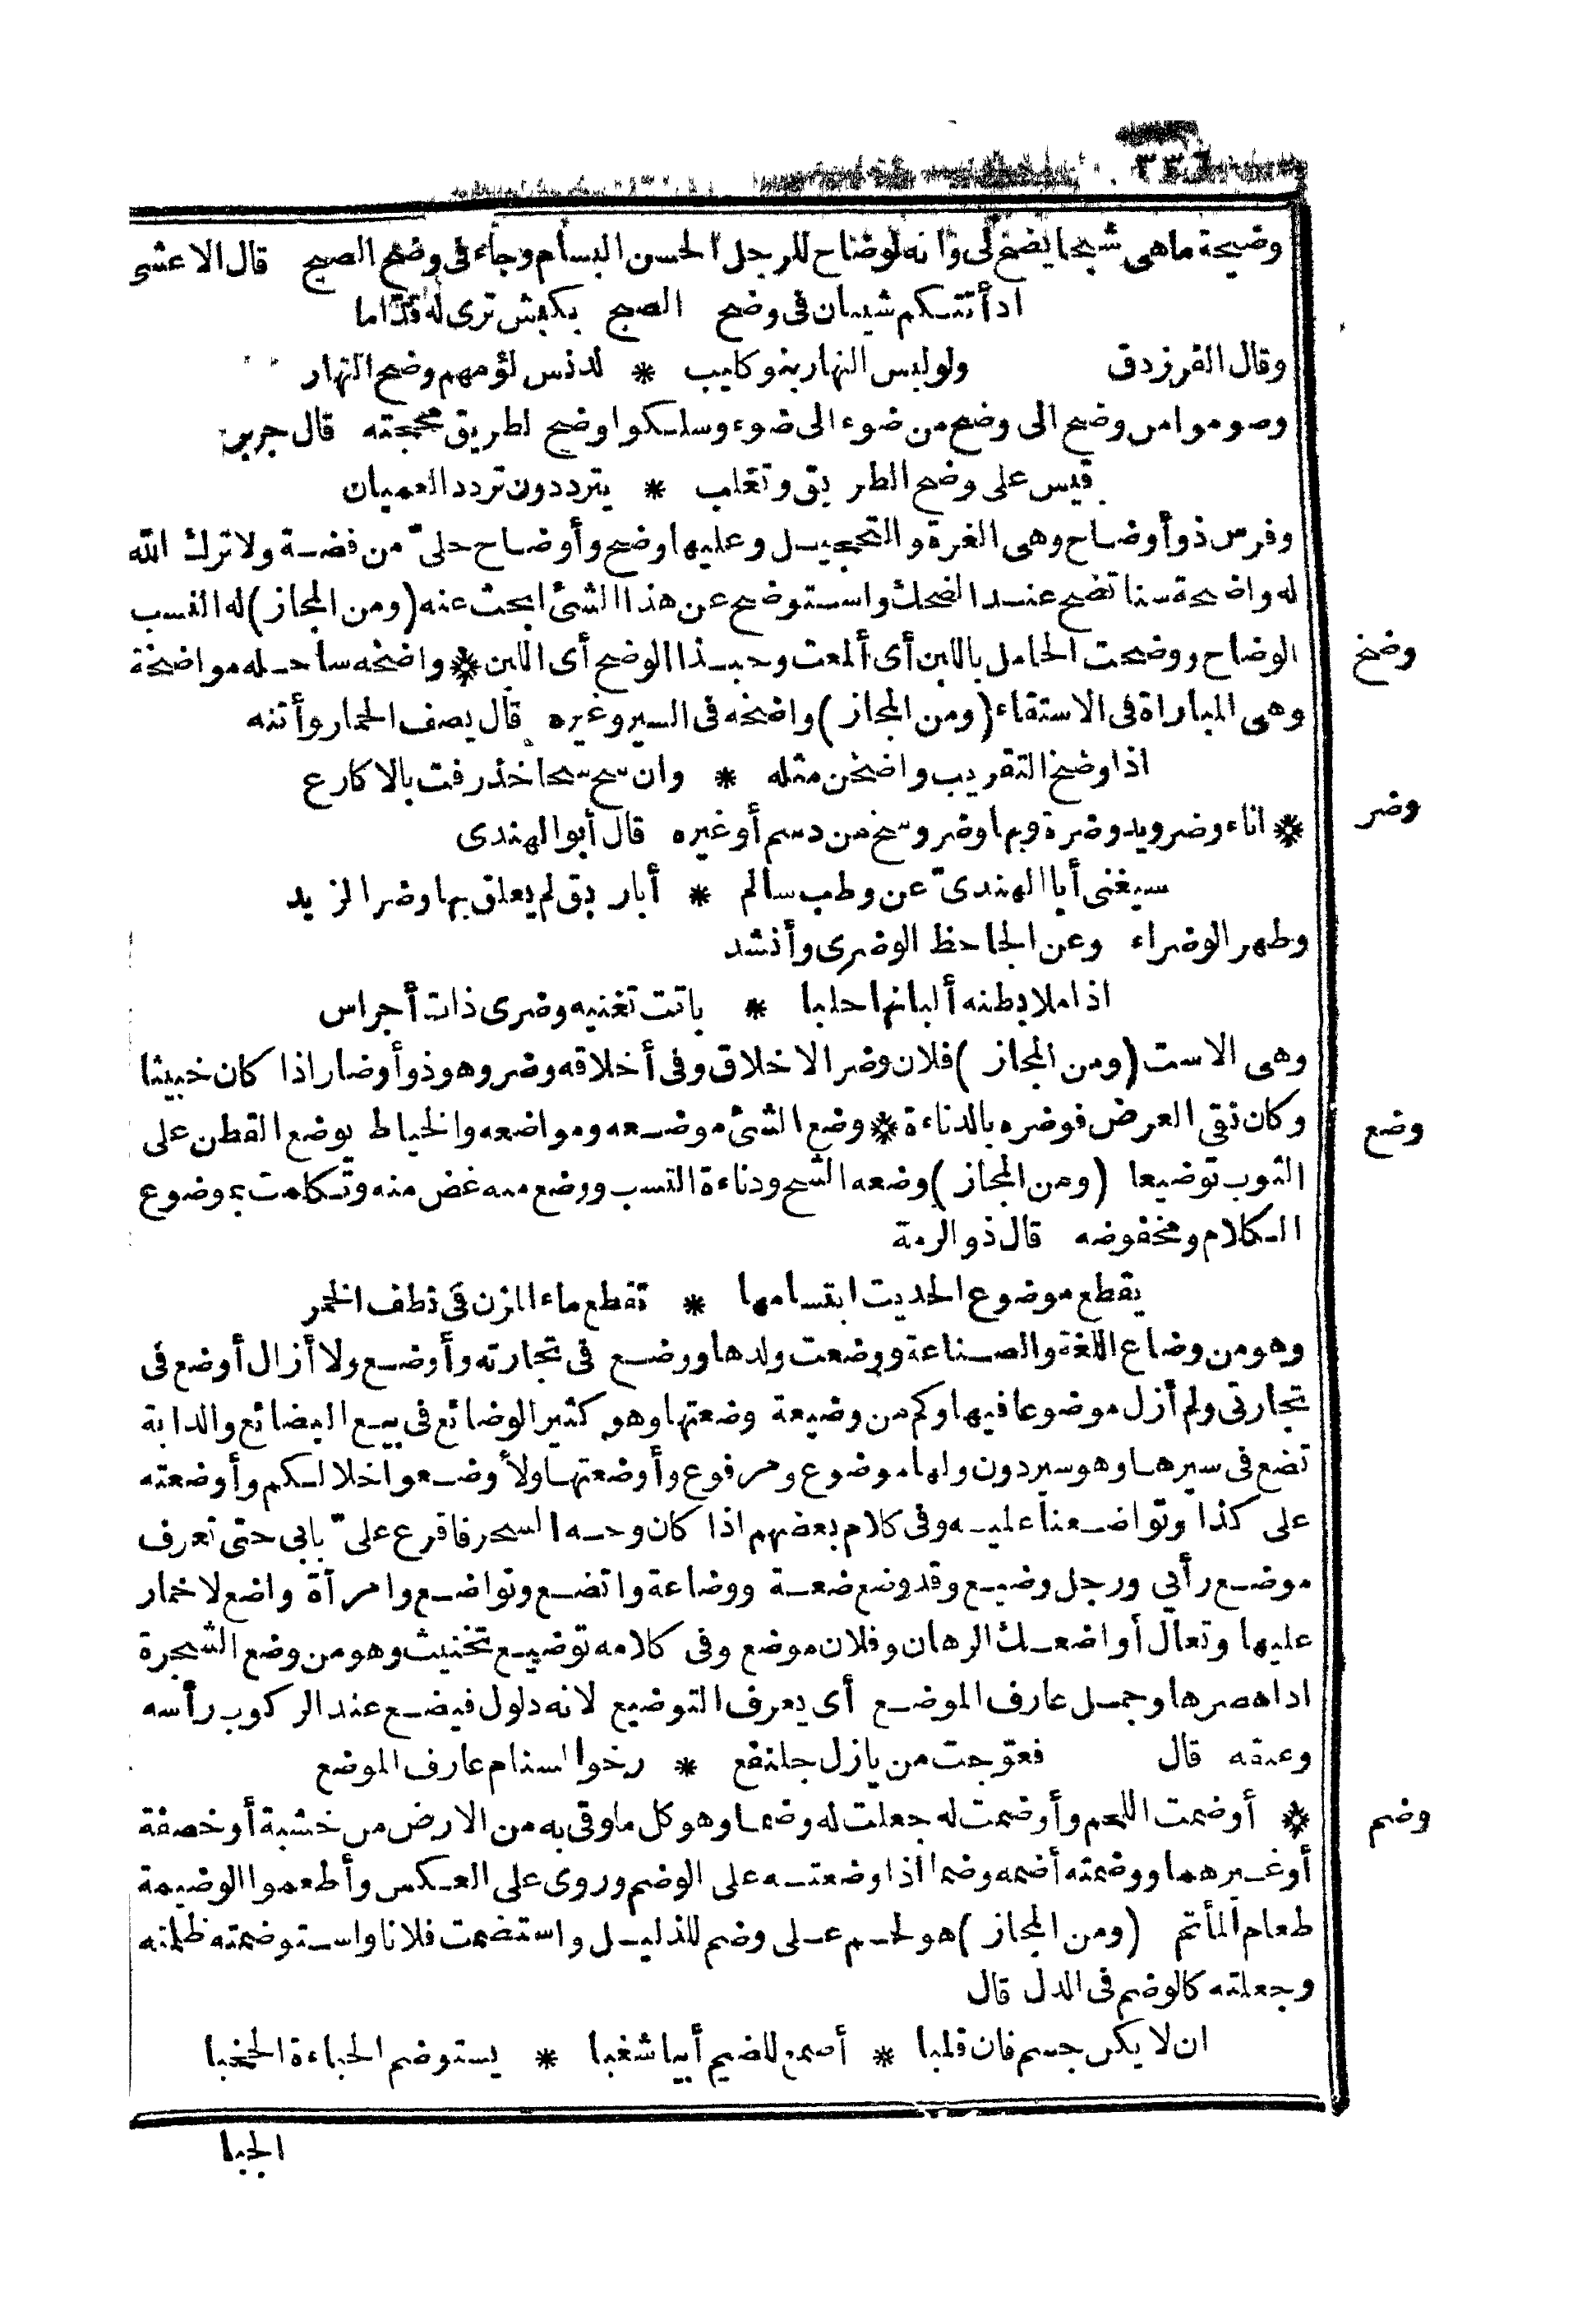 ٣٣٦
وضيحة ماهى شبحا يضخ لى وانه لوضاح للرجل الحسن البسام وجاء فى وضح الصبح قال الاعشى
اذ أتتكم شيبان فى وضح الصبح بكبش ترى له قداما
وقال الفرزدق ولو لبس النهار بنو كليب * لدنس لؤمهم وضح النهار
وصوموا من وضح الى وضح من ضوء الى ضوء وسلكوا وضح لطريق محجته قال جرير
قيس على وضح الطريق وتغلب * يترددون تردد العميان
وفرس ذو أوضاح وهى الغرة والتحجيل وعليها وضح وأوضاح حلىّ من فضة ولا ترك الله
له واضحة سنا تضح عند الضحك واستوضح عن هذا الشئ ابحث عنه (ومن المجاز) له النسب
الوضاح ووضحت الحامل باللبن أى ألمعت وحبذا الوضح أى اللبن * واضخه ساجله مواضخة
وضخ
وهى المباراة فى الاستقاء (ومن المجاز) واضخه فى السير وغيره قال يصف الحمار وأتنه
اذا وضخ التقريب واضخن مثله * وان سح سحا خذرفت بالاكارع
* اناء وضر ويد وضرة وبها وضر وسخ من دسم أو غيره قال أبو الهندى
وضر
سيغنى أبا الهندىّ عن وطب سالم * أباريق لم يعلق بها وضر الزبد
وطهر الوضراء وعن الجاحظ الوضرى وأنشد
اذا ملا بطنه ألبانها حلبا * باتت تغنيه وضرى ذات أجراس
وهى الاست (ومن المجاز) فلان وضر الاخلاق وفى أخلاقه وضر وهو ذو أوضار اذا كان خبيثا
وكان نقى العرض فوضره بالدناءة * وضع الشئ موضعه ومواضعه والخياط يوضع القطن على
وضع
الثوب توضيعا (ومن المجاز) وضعه الشح ودناءة النسب ووضع منه غض منه وتكلمت بموضوع
الكلام ومخفوضه قال ذو الرمة
يقطع موضوع الحديث ابتسامها * تقطع ماء المزن فى نطف الخمر
وهو من وضاع اللغة والصناعة ووضعت ولدها ووضع فى تجارته وأوضع ولا أزال أوضع فى
تجارتى ولم أزل موضوعا فيها وكم من وضيعة وضعتها وهو كثير الوضائع فى بيع البضائع والدابة
تضع فى سيرها وهو سير دون ولها موضوع ومرفوع وأوضعتها ولأ وضعوا خلالكم وأوضعته
على كذا وتواضعنا عليه وفى كلام بعضهم اذا كان وجه السحر فاقرع علىّ بابى حتى تعرف
موضع رأيى ورجل وضيع وقد وضع ضعة ووضاعة واتضع وتواضع وامرأة واضع لا خمار
عليها وتعال أواضعك الرهان وفلان موضع وفى كلامه توضيع تخنيث وهو من وضع الشجرة
اذا هصرها وجمل عارف الموضع أى يعرف التوضيع لانه ذلول فيضع عند الركوب رأسه
وعنقه قال فعوّجت من بازل جلنفع * رخو السنام عارف الموضع
* أوضمت اللحم وأوضمت له جعلت له وضما وهو كل ما وقى به من الارض من خشبة أو خصفة
وضم
أو غيرهما ووضمته أضمه وضما اذا وضعته على الوضم وروى على العكس وأطعموا الوضيمة
طعام المأتم (ومن المجاز) هو لحم على وضم للذليل واستضمت فلانا واستوضمته ظلمته
وجعلته كالوضم فى الذل قال
ان لا يكن جسم فان قلبا * أصمع للضيم أبيا شغبا * يستوضم الجباءة الجخبا
الجبا